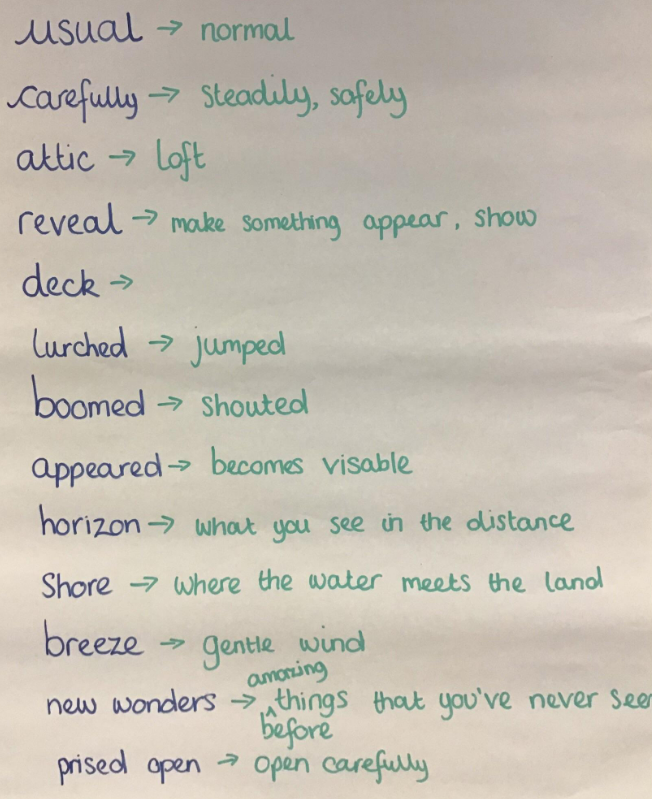 usual → normal
carefully → steadily, safely
attic → loft
reveal → make something appear, show
deck →
lurched → jumped
boomed → shouted
appeared → becomes visable
horizon → what you see in the distance
Shore → where the water meets the land
breeze → gentle wind
amazing
new wonders → ^things that you've never seen
before
prised open → open carefully